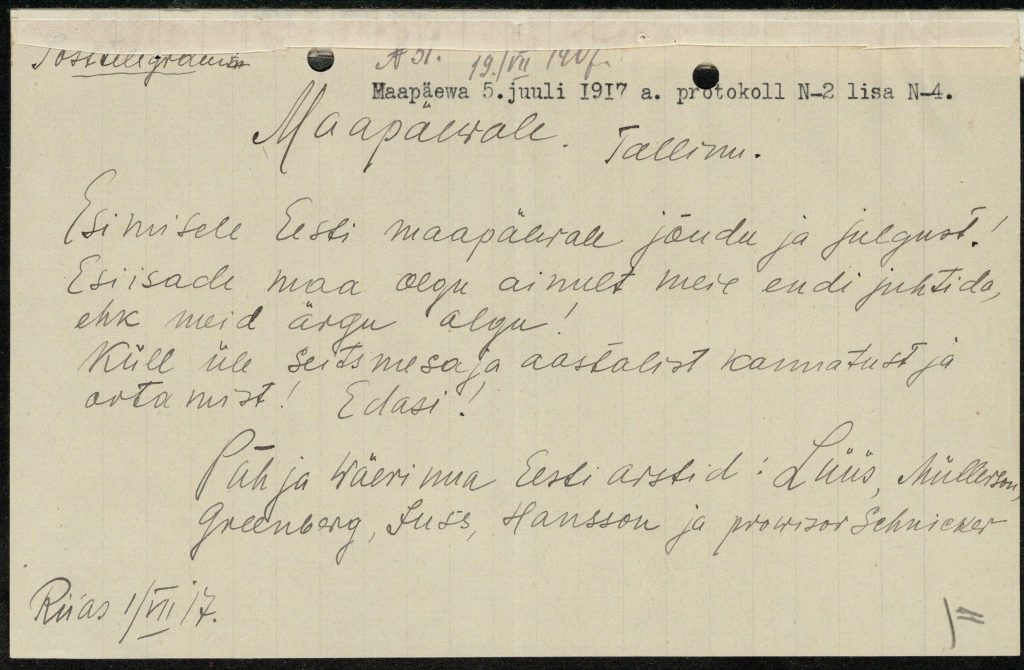 Posttelegramm
A 31. 19./VII
Maapäewa 5.juuli 1917 a. protokoll N-2 lisa N-4.
Maapäewale. Tallinu.
Esimisele Eesti maapäewale jõudu ja julgust!
Esiisade maa olgu ainult meie endi juhtida,
ehk meid ärgu olgu!
Küll üle seitsmesaja aastalist kannatust ja
ootamist! Edasi!
Põhja wäerinna Eesti arstid: Lüüs, Müllerson,
Greenberg, Juss, Hansson ja prowisor Schnicker
Riias 1/VII 17.